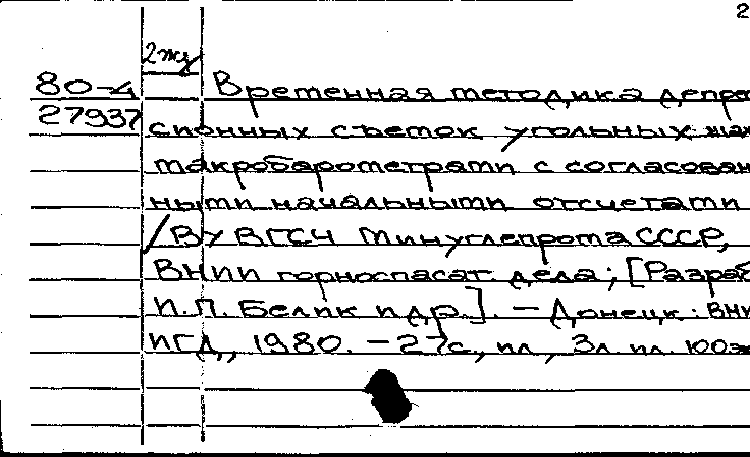 2
2жу
80-4 Временная методика депре
27937 сионных съемок угольных шах
макробарометрами с согласован
ными начальными отсчетами
/ВУ ВГСЧ Минуглепрома СССР,
ВНИИ горноспасат. дела; [Разраб
И.П. Белик и др.]. – Донецк: ВНИ
ИГД, 1980. – 27с., ил, 3л. ил. 100эк